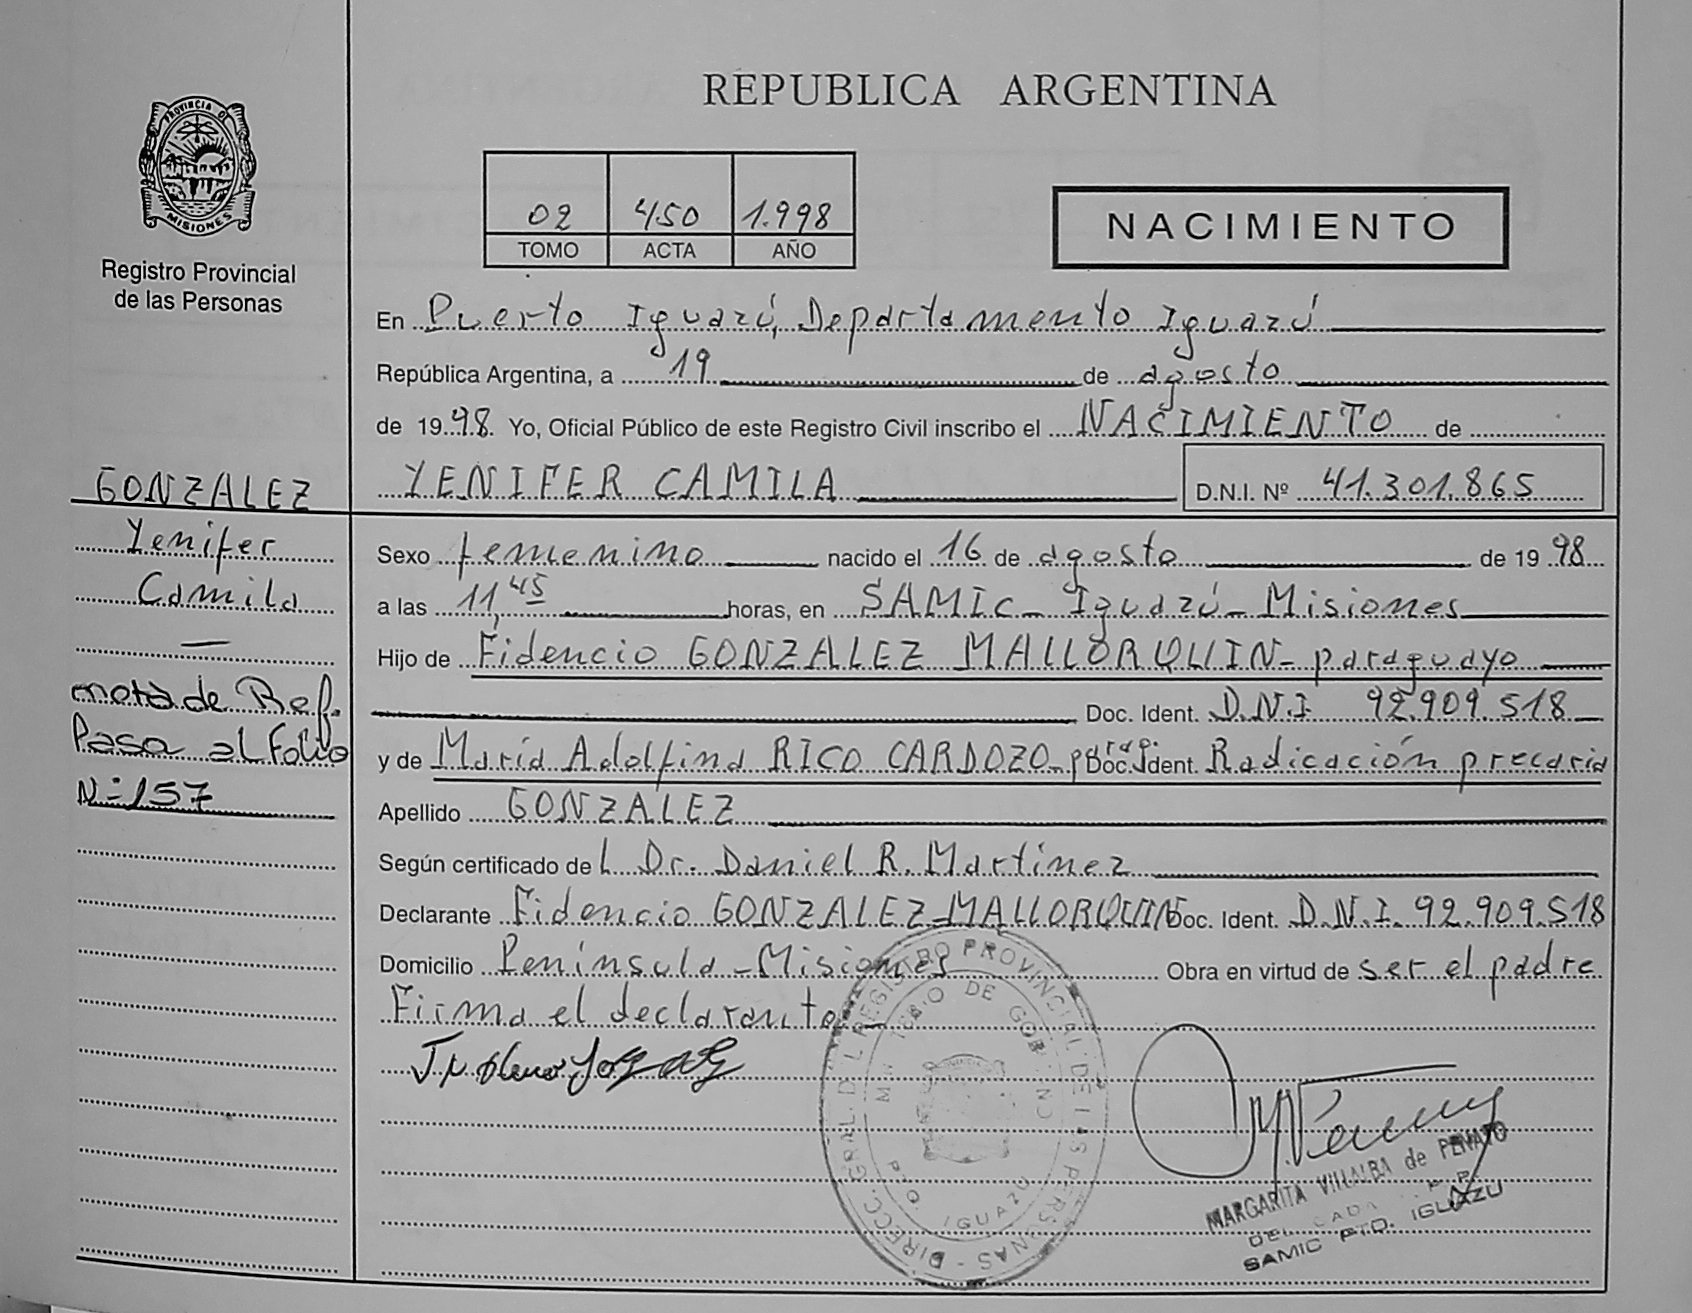 REPUBLICA ARGENTINA
PROVINCIA DE
MISIONES
Registro Provincial
de las Personas
02 450 1.998
TOMO ACTA AÑO
NACIMIENTO
En Puerto Iguazú, Departamento Iguazú
República Argentina, a 19 de agosto
de 1998. Yo, Oficial Público de este Registro Civil inscribo el NACIMIENTO de
YENIFER CAMILA D.N.I. Nº 41.301.865
GONZALEZ
Yenifer
Camila
nota de Ref.
Pasa al Folio
Nº 157
Sexo femenino nacido el 16 de agosto de 1998
a las 11,45 horas, en SAMIC - Iguazú - Misiones
Hijo de Fidencio GONZALEZ MALLORQUIN - paraguayo
Doc. Ident. D.N.I 92.909.518
y de María Adolfina RICO CARDOZO - Doc. Ident. Radicación precaria
Apellido GONZALEZ
Según certificado de L Dr. Daniel R. Martinez
Declarante Fidencio GONZALEZ MALLORQUIN Doc. Ident. D.N.I. 92.909.518
Domicilio Península - Misiones Obra en virtud de ser el padre
Firma el declarante
DIRECC. GRAL. DEL REGISTRO PROVINCIAL DE LAS PERSONAS -
MINISTERIO DE GOBIERNO
PTO. IGUAZU
MARGARITA VILLALBA de PENATO
SAMIC PTO. IGUAZU